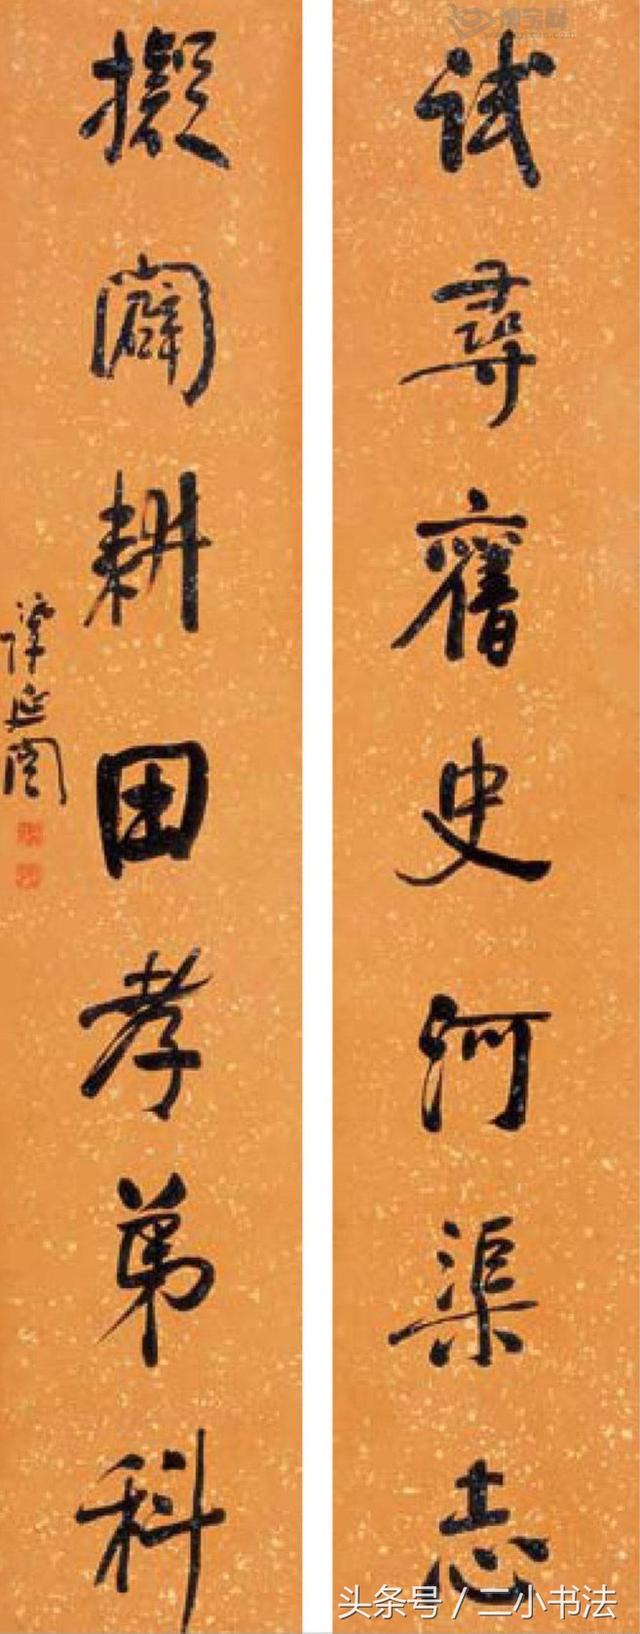 試尋舊史河渠志
擬闢耕田孝弟科
譚延闓
头条号 / 二小书法